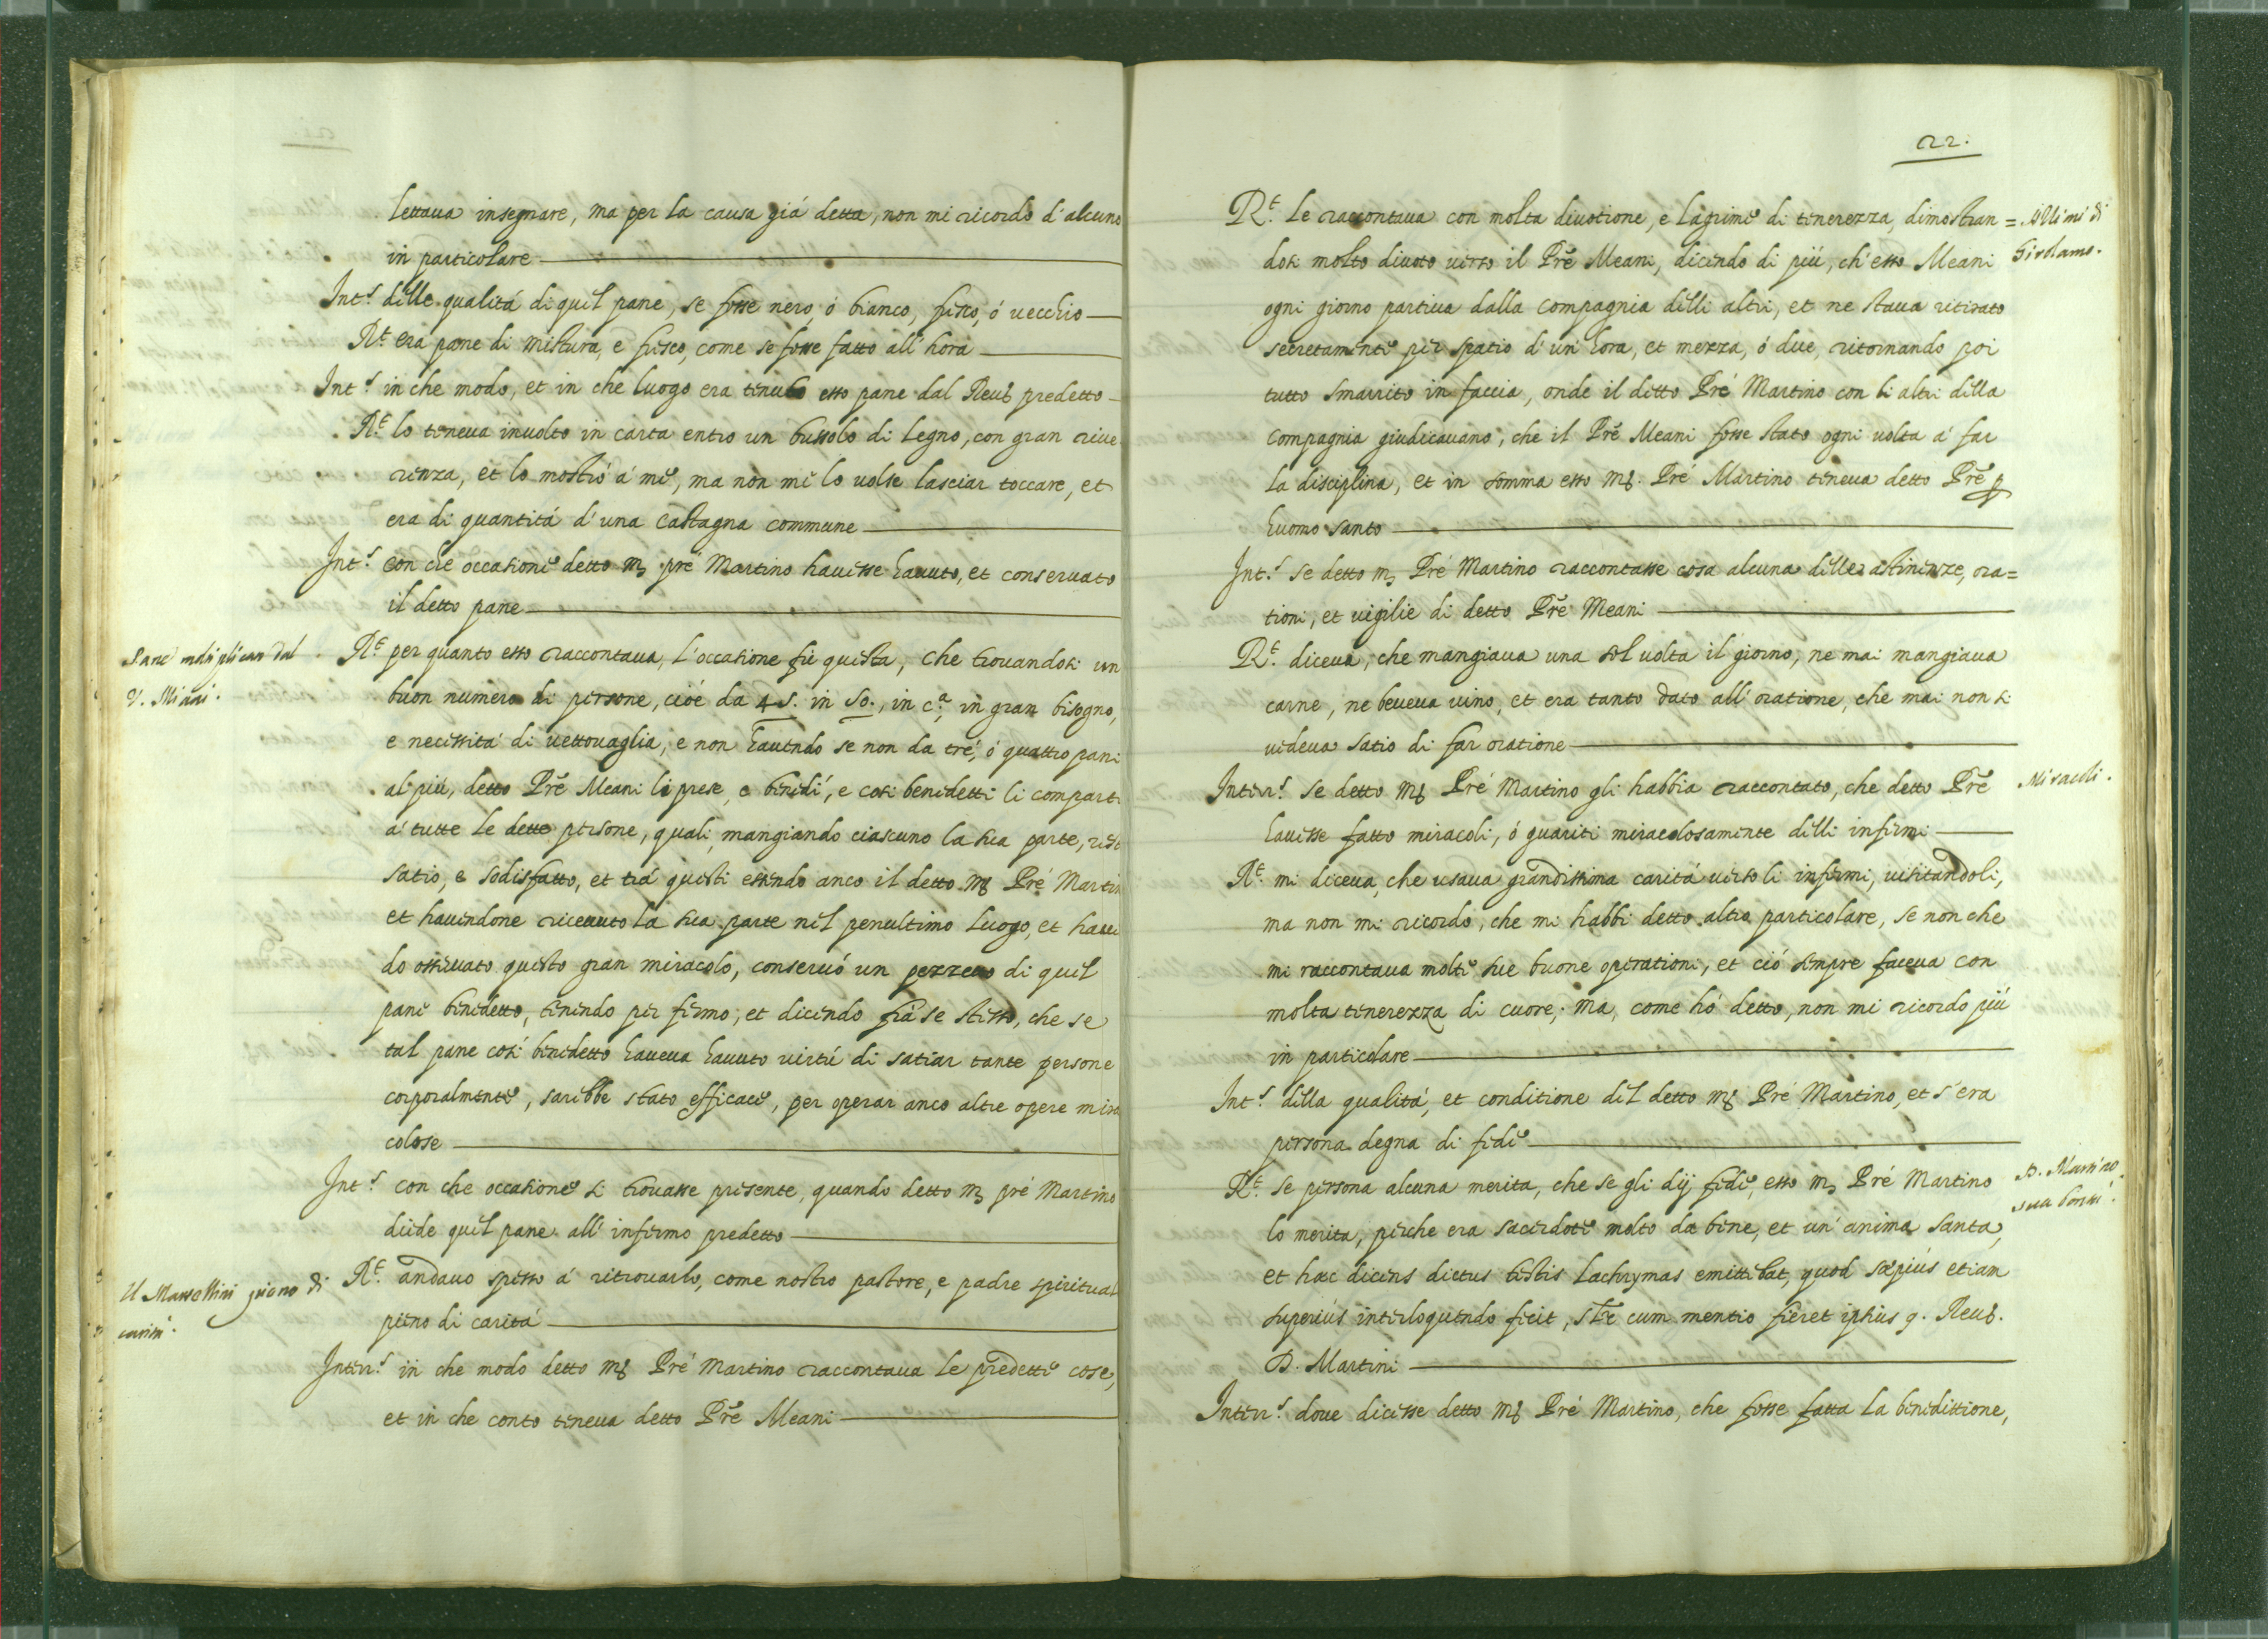 lettaua insegnare, ma per la causa giá detta, non mi ricordo d'alcuno
in particolare
Int.s delle qualitá di quel pane, se fosse nero, ó bianco, fresco, ó uecchio
R.t era pane di mistura, e fresco, come se fosse fatto all'hora
Int.s in che modo, et in che luogo era tenuto esso pane dal Reu.do predetto
R.t lo teneua inuolto in carta entro un bussolo di legno, con gran riue
renza, et lo mostró á me, ma non me lo uolse lasciar toccare, et
era di quantitá d'una castagna commune
Int.s con che occasione detto m. pré Martino hauesse hauuto, et conseruato
il detto pane
Pane moltiplicato dal
V. Miani.
R.t per quanto esso raccontaua, l'occasione fú questa, che trouandosi un
buon numero di persone, cioé da 45. in 50., in c.a, in gran bisogno,
e necessitá di uettouaglia, e non hauendo se non da tré, ó quattro pani
al piú, detto Prẽ Meani li prese, e benedí, e cosi benedetti li comparti
á tutte le dette persone, quali, mangiando ciascuno la sua parte, restó
satio, e sodisfatto, et trá questi essendo anco il detto m. Pré Martin
et hauendone riceuuto la sua parte nel penultimo luogo, et hauen
do osseruato questo gran miracolo, conseruó un pezzetto di quel
pane benedetto, tenendo per fermo, et dicendo frá se stesso, che se
tal pane cosí benedetto haueua hauuto uirtú di satiar tante persone
corporalmente, sarebbe stato efficace, per operar anco altre opere mira
colose
Int.s con che occasione si trouasse presente, quando detto m. pré Martino
diede quel pane all'infermo predetto
Il Marsellini pieno di
caritá.
R.t andauo spesso á ritrouarlo, come nostro pastore, e padre spiritual
pieno di caritá
Interr.s in che modo detto m. Pré Martino raccontaua le predette cose,
et in che conto teneua detto Prẽ Meani
22.
R.t le raccontaua con molta diuotione, e lagrime di tenerezza, dimostran=
dosi molto diuoto uerso il Prẽ Meani, dicendo di piú, ch'esso Meani
Girolamo.
ogni giorno partiua dalla compagnia delli altri, et ne staua ritirato
secretamente per spatio d'un'hora, et mezza, ó due, ritornando poi
tutto smarrito in faccia, onde il detto Pré Martino con li altri della
compagnia giudicauano, che il Prẽ Meani fosse stato ogni uolta á far
la disciplina, et in somma esso m. Pré Martino teneua detto Prẽ p
huomo santo
Int.s se detto m. Pré Martino raccontasse cosa alcuna delle astinenze, ora=
tioni, et uigilie di detto Prẽ Meani
R.t diceua, che mangiaua una sol uolta il giorno, ne mai mangiaua
carne, ne beueua uino, et era tanto dato all'oratione, che mai non si
uedeua satio di far oratione
Interr.s se detto m. Pré Martino gli habbia raccontato, che detto Prẽ
Miracoli.
hauesse fatto miracoli, ó guariti miracolosamente delli infermi
R.t mi diceua, che usaua grandissima caritá uerso li infermi, uisitandoli,
ma non mi ricordo, che mi habbi detto altro particolare, se non che
mi raccontaua molte sue buone operationi, et ció sempre faceua con
molta tenerezza di cuore; ma, come hó detto, non mi ricordo piú
in particolare
Int.s della qualitá, et conditione del detto m. Pré Martino, et s'era
persona degna di fede
R.t se persona alcuna merita, che se gli dij fede, esso m. Pré Martino
P. Martino
sua bontá.
lo merita, perche era sacerdote molto da bene, et un'anima santa,
et haec dicens dictus testis lachrymas emittebat, quod saepiús etiam
superiús interloquendo fecit, cum mentio fieret ipsius q. Reu.di
D. Martini
Interr.s doue dicesse detto m. Pré Martino, che fosse fatta la benedittione,